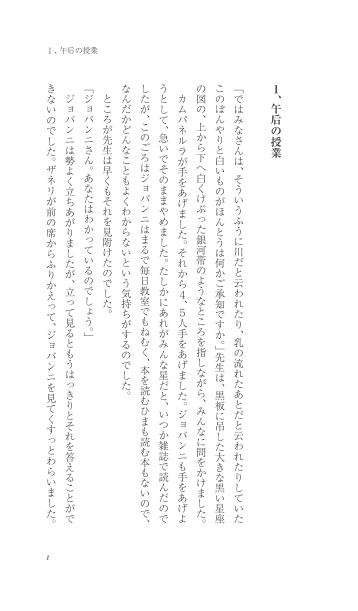 1、午后の授業
1、午后の授業
「ではみなさんは、そういうふうに川だと云われたり、乳の流れたあとだと云われたりしていた
このぼんやりと白いものがほんとうは何かご承知ですか。」先生は、黒板に吊した大きな黒い星座
の図の、上から下へ白くけぶった銀河帯のようなところを指しながら、みんなに問をかけました。
カムパネルラが手をあげました。それから4、5人手をあげました。ジョバンニも手をあげよ
うとして、急いでそのままやめました。たしかにあれがみんな星だと、いつか雑誌で読んだので
したが、このごろはジョバンニはまるで毎日教室でもねむく、本を読むひまも読む本もないので、
なんだかどんなこともよくわからないという気持ちがするのでした。
ところが先生は早くもそれを見附けたのでした。
「ジョバンニさん。あなたはわかっているのでしょう。」
ジョバンニは勢よく立ちあがりましたが、立って見るともうはっきりとそれを答えることがで
きないのでした。ザネリが前の席からふりかえって、ジョバンニを見てくすっとわらいました。
1